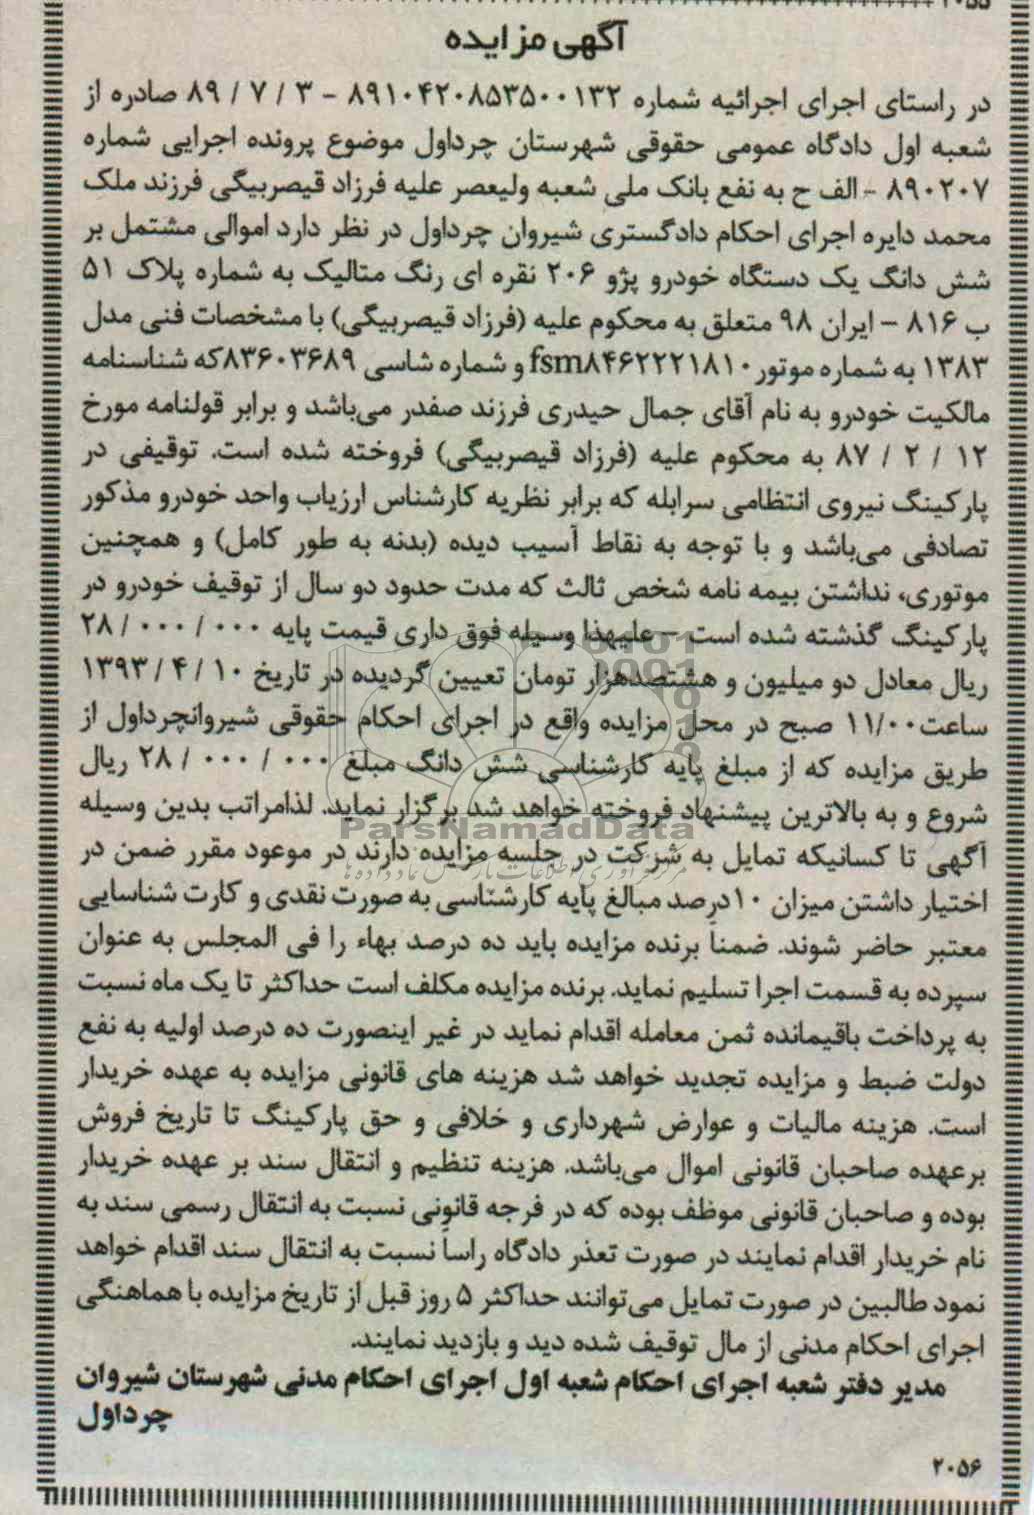 ۲۰۵۵
آگهی مزایده
در راستای اجرای اجرائیه شماره ۸۹۱۰۴۲۰۸۵۳۵۰۰۱۳۲ - ۳ / ۷ / ۸۹ صادره از
شعبه اول دادگاه عمومی حقوقی شهرستان چرداول موضوع پرونده اجرایی شماره
۸۹۰۲۰۷ - الف ح به نفع بانک ملی شعبه ولیعصر علیه فرزاد قیصربیگی فرزند ملک
محمد دایره اجرای احکام دادگستری شیروان چرداول در نظر دارد اموالی مشتمل بر
شش دانگ یک دستگاه خودرو پژو ۲۰۶ نقره ای رنگ متالیک به شماره پلاک ۵۱
ب ۸۱۶ - ایران ۹۸ متعلق به محکوم علیه (فرزاد قیصربیگی) با مشخصات فنی مدل
۱۳۸۳ به شماره موتور fsm۸۴۶۲۲۲۱۸۱۰ و شماره شاسی ۸۳۶۰۳۶۸۹که شناسنامه
مالکیت خودرو به نام آقای جمال حیدری فرزند صفدر می‌باشد و برابر قولنامه مورخ
۱۲ / ۲ / ۸۷ به محکوم علیه (فرزاد قیصربیگی) فروخته شده است. توقیفی در
پارکینگ نیروی انتظامی سرابله که برابر نظریه کارشناس ارزیاب واحد خودرو مذکور
تصادفی می‌باشد و با توجه به نقاط آسیب دیده (بدنه به طور کامل) و همچنین
موتوری، نداشتن بیمه نامه شخص ثالث که مدت حدود دو سال از توقیف خودرو در
پارکینگ گذشته شده است - علیهذا وسیله فوق داری قیمت پایه ۰۰۰ / ۰۰۰ / ۲۸
ریال معادل دو میلیون و هشتصدهزار تومان تعیین گردیده در تاریخ ۱۰ / ۴ / ۱۳۹۳
ساعت۱۱/۰۰ صبح در محل مزایده واقع در اجرای احکام حقوقی شیروانچرداول از
طریق مزایده که از مبلغ پایه کارشناسی شش دانگ مبلغ ۰۰۰ / ۰۰۰ / ۲۸ ریال
شروع و به بالاترین پیشنهاد فروخته خواهد شد برگزار نماید. لذامراتب بدین وسیله
ParsNamadData
آگهی تا کسانیکه تمایل به شرکت در جلسه مزایده دارند در موعود مقرر ضمن در
اختیار داشتن میزان ۱۰درصد مبالغ پایه کارشناسی به صورت نقدی و کارت شناسایی
معتبر حاضر شوند. ضمناً برنده مزایده باید ده درصد بهاء را فی المجلس به عنوان
سپرده به قسمت اجرا تسلیم نماید. برنده مزایده مکلف است حداکثر تا یک ماه نسبت
به پرداخت باقیمانده ثمن معامله اقدام نماید در غیر اینصورت ده درصد اولیه به نفع
دولت ضبط و مزایده تجدید خواهد شد هزینه های قانونی مزایده به عهده خریدار
است. هزینه مالیات و عوارض شهرداری و خلافی و حق پارکینگ تا تاریخ فروش
برعهده صاحبان قانونی اموال می‌باشد. هزینه تنظیم و انتقال سند بر عهده خریدار
بوده و صاحبان قانونی موظف بوده که در فرجه قانونی نسبت به انتقال رسمی سند به
نام خریدار اقدام نمایند در صورت تعذر دادگاه راساً نسبت به انتقال سند اقدام خواهد
نمود طالبین در صورت تمایل می‌توانند حداکثر ۵ روز قبل از تاریخ مزایده با هماهنگی
اجرای احکام مدنی از مال توقیف شده دید و بازدید نمایند.
مدیر دفتر شعبه اجرای احکام شعبه اول اجرای احکام مدنی شهرستان شیروان
چرداول
۲۰۵۶